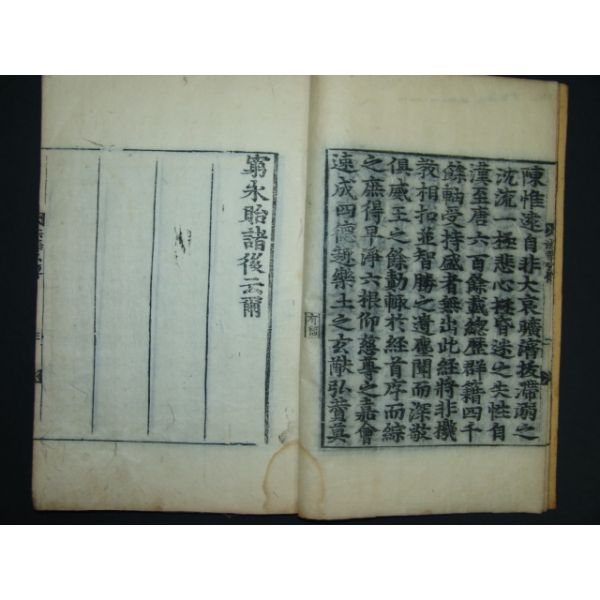 陳惟遠自非大哀曠濟拔滯溺之
沈流一極悲心拯昏迷之失性自
漢至唐六百餘載總歷群籍四千
餘軸受持盛者無出此經將非機
教相扣並智勝之遺塵聞而深敬
俱威王之餘勣輒於經首序而綜
之庶得早淨六根仰慈尊之嘉會
速成四德趣樂土之玄猷弘贊莫
窮永貽諸後云爾